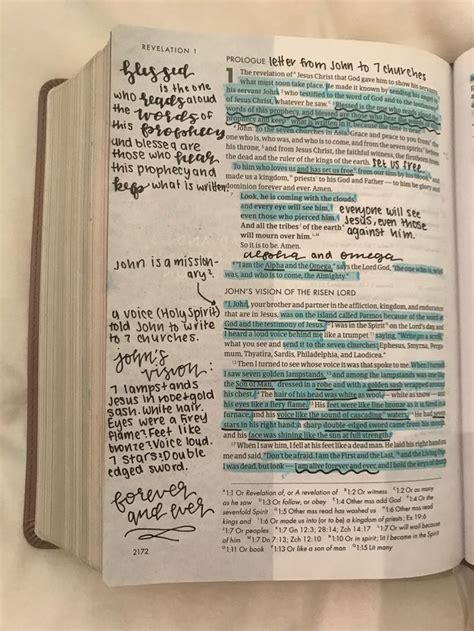 REVELATION 1
blessed
is the one
who reads aloud
the words of
this prophecy
and blessed are
those who hear
this prophecy and
keep what is written
John is a mission-
ary?
a voice (Holy Spirit)
told John to write
to 7 churches.
John's
vision:
7 lampstands
Jesus in robe + gold
sash. White hair.
Eyes were a firey
flame. Feet like
bronze. Voice loud.
7 stars. Double
edged sword.
forever
and ever
2172
PROLOGUE letter from John to 7 churches
1 The revelation of Jesus Christ that God gave him to show his servants
what must soon take place. He made it known by sending his angel to
his servant John, who testified to the word of God and to the testimony
of Jesus Christ, whatever he saw. Blessed is the one who reads aloud the
words of this prophecy, and blessed are those who hear the words of this
prophecy and keep what is written in it, because the time is near.
John: To the seven churches in Asia. Grace and peace to you from the
one who is, who was, and who is to come, and from the seven spirits before
his throne, and from Jesus Christ, the faithful witness, the firstborn from
the dead and the ruler of the kings of the earth.
set us free
To him who loves us and has set us free from our sins by his blood, and
made us a kingdom, priests to his God and Father — to him be glory and
dominion forever and ever. Amen.
Look, he is coming with the clouds,
and every eye will see him,
even those who pierced him.
And all the tribes of the earth
will mourn over him.
So it is to be. Amen.
everyone will see
Jesus, even those
against him.
alpha and omega
"I am the Alpha and the Omega," says the Lord God, "the one who is, who
was, and who is to come, the Almighty."
JOHN'S VISION OF THE RISEN LORD
I, John, your brother and partner in the affliction, kingdom, and endurance
that are in Jesus, was on the island called Patmos because of the word of
God and the testimony of Jesus. I was in the Spirit on the Lord's day, and
I heard a loud voice behind me like a trumpet saying, "Write on a scroll
what you see and send it to the seven churches: Ephesus, Smyrna, Perga-
mum, Thyatira, Sardis, Philadelphia, and Laodicea."
Then I turned to see whose voice it was that spoke to me. When I turned
I saw seven golden lampstands, and among the lampstands was one like
the Son of Man, dressed in a robe and with a golden sash wrapped around
his chest. The hair of his head was white as wool — white as snow — and
his eyes like a fiery flame. His feet were like fine bronze as it is fired in a
furnace, and his voice like the sound of cascading waters. He had seven
stars in his right hand; a sharp double-edged sword came from his mouth,
and his face was shining like the sun at full strength.
When I saw him, I fell at his feet like a dead man. He laid his right hand on
me and said, "Don't be afraid. I am the First and the Last, and the Living One.
I was dead, but look — I am alive forever and ever, and I hold the keys of death